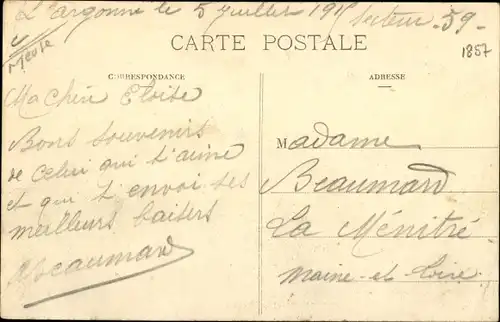 L'argonne le 5 Juillet 191
Secteur 59-
Meuse
1857
CARTE POSTALE
CORRESPONDANCE
ADRESSE
Ma Chère Eloise
Bons souvenirs
de Celui qui t'aime
et qui t'envoi ses
meilleurs baisers
Beaumard
Madame
Beaumard
La Ménitré
Maine-et-Loire